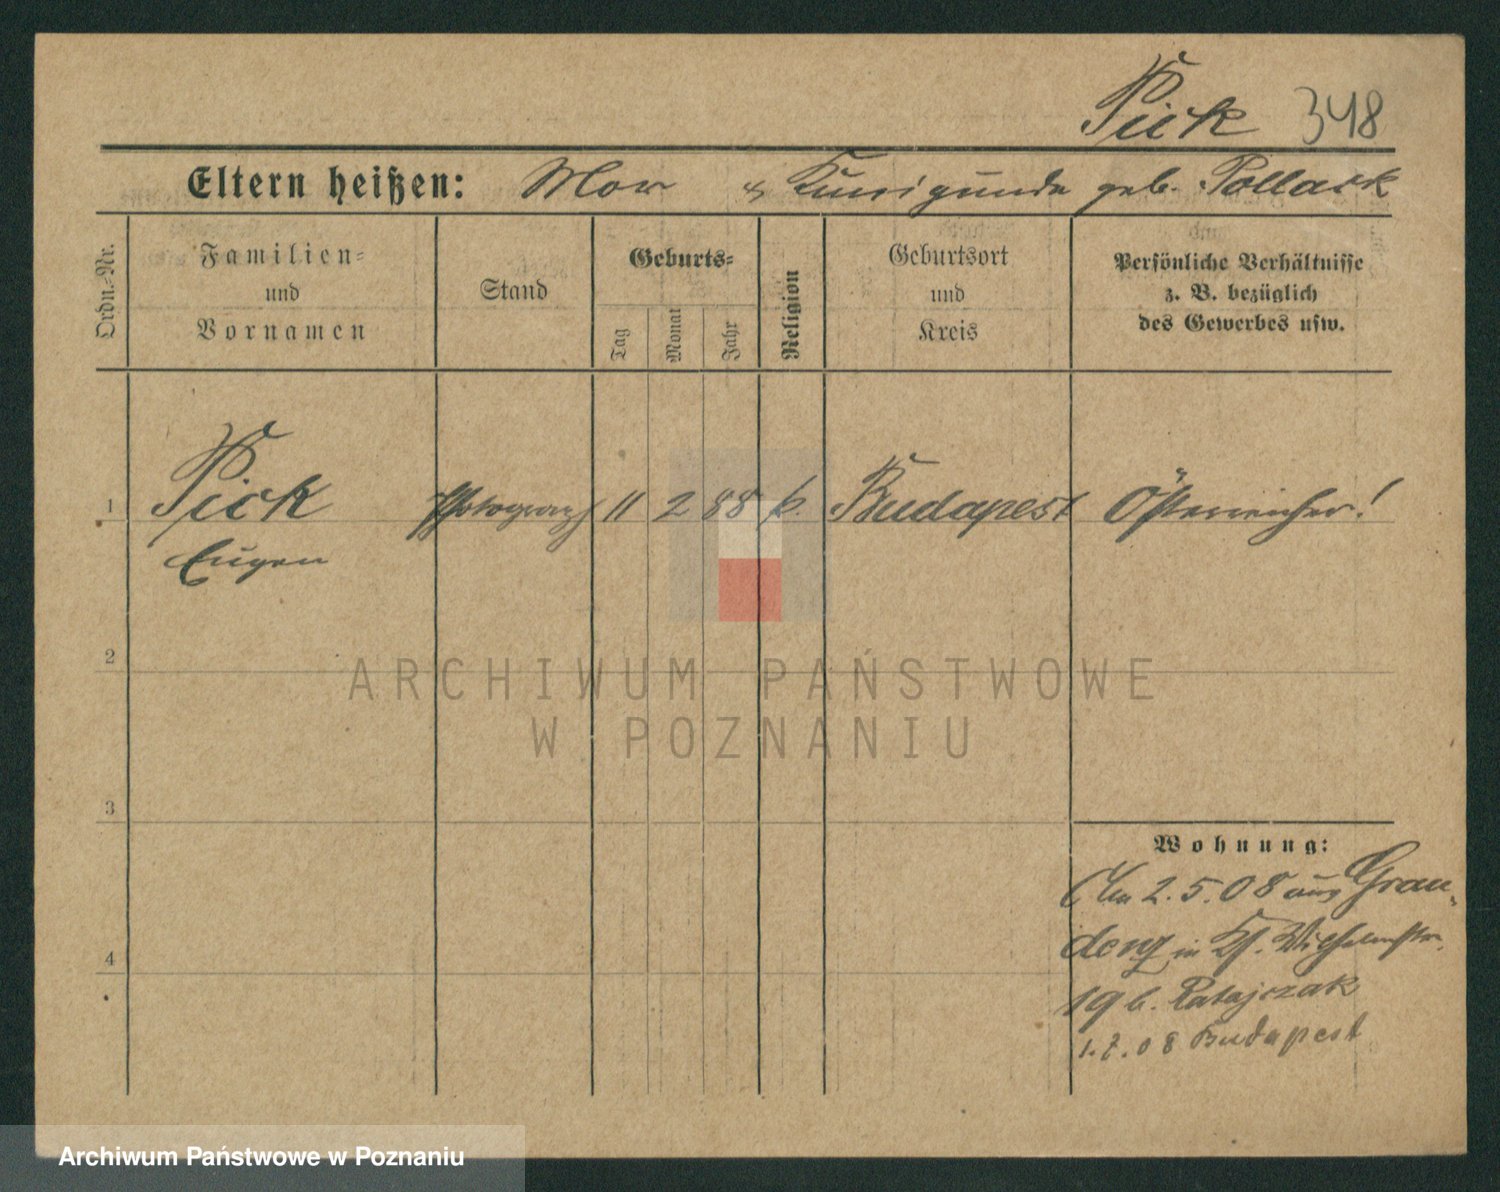 Pick 348
Eltern heißen: Mor & Kunigunde geb. Pollack
Ordn.-Nr.
Familien=
und
Vornamen
Stand
Geburts=
Tag
Monat
Jahr
Religion
Geburtsort
und
Kreis
Persönliche Verhältnisse
z. B. bezüglich
des Gewerbes usw.
1 Pick Photograph 11 2 88 k. Budapest Österreicher!
Eugen
2
ARCHIWUM PAŃSTWOWE
W POZNANIU
3
Wohnung:
Am 2.5.08 aus Grau-
denz in Kl. Wilhelmstr.
19 b. Ratajczak
4
1.7.08 Budapest
Archiwum Państwowe w Poznaniu